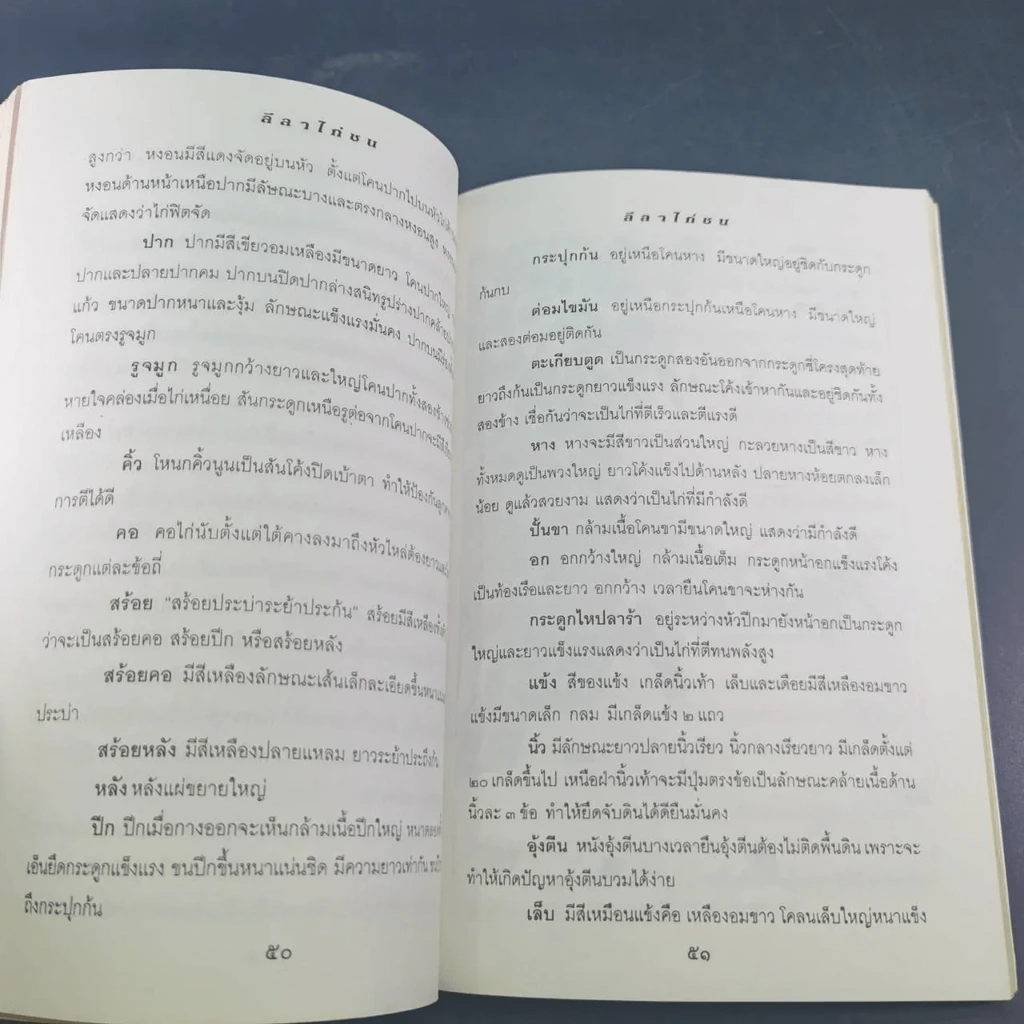 ลีลาไก่ชน
สูงกว่า หงอนมีสีแดงจัดอยู่บนหัว ตั้งแต่โคนปากไปบนหัว
หงอนด้านหน้าเหนือปากมีลัษณะบางและตรงกลางหงอนสูง
จัดแสดงว่าไก่ฟิตจัด
ปาก ปากมีสีเขียวอมเหลืองมีขนาดยาว โคนปากใหญ่
ปากและปลายปากคม ปากบนปิดปากล่างสนิทรูปร่างปากคล้าย
แก้ว ขนาดปากหนาและงุ้ม ลักษณะแข็งแรงมั่นคง ปากบนมี
โคนตรงรูจมูก
รูจมูก รูจมูกกว้างยาวและใหญ่โคนปากทั้งสองข้าง
หายใจคล่องเมื่อไก่เหนื่อย สันกระดูกเหนือรูต่อจากโคนปากจะมีสี
เหลือง
คิ้ว โหนกคิ้วนูนเป็นสันโค้งปิดเบ้าตา ทำให้ป้องกัน
การตีได้ดี
คอ คอไก่นับตั้งแต่ใต้คางลงมาถึงหัวไหล่ต้องยาวและ
กระดูกแต่ละข้อถี่
สร้อย "สร้อยประบ่าระย้าประก้น" สร้อยมีสีเหลือง
ว่าจะเป็นสร้อยคอ สร้อยปีก หรือสร้อยหลัง
สร้อยคอ มีสีเหลืองลักษณะเส้นเล็กละเอียดขึ้นหนา
ประบ่า
สร้อยหลัง มีสีเหลืองปลายแหลม ยาวระย้าประถึงก้น
หลัง หลังแผ่ขยายใหญ่
ปีก ปีกเมื่อกางออกจะเห็นกล้ามเนื้อปีกใหญ่ หนาตลอด
เอ็นยึดกระดูกแข็งแรง ขนปีกขึ้นหนาแน่นชิด มีความยาวเท่ากัน
ถึงกระปุกก้น
๕๐
ลีลาไก่ชน
กระปุกก้น อยู่เหนือโคนหาง มีขนาดใหญ่อยู่ชิดกับกระดูก
ก้นกบ
ต่อมไขมัน อยู่เหนือกระปุกก้นเหนือโคนหาง มีขนาดใหญ่
และสองต่อมอยู่ติดกัน
ตะเกียบตูด เป็นกระดูกสองอันออกจากกระดูกซี่โครงสุดท้าย
ยาวถึงก้นเป็นกระดูกยาวแข็งแรง ลักษณะโค้งเข้าหากันและอยู่ชิดกันทั้ง
สองข้าง เชื่อกันว่าจะเป็นไก่ที่ตีเร็วและตีแรงดี
หาง หางจะมีสีขาวเป็นส่วนใหญ่ กะลวยหางเป็นสีขาว หาง
ทั้งหมดดูเป็นพวงใหญ่ ยาวโค้งแข็งไปด้านหลัง ปลายหางห้อยตกลงเล็ก
น้อย ดูแล้วสวยงาม แสดงว่าเป็นไก่ที่มีกำลังดี
ปั้นขา กล้ามเนื้อโคนขามีขนาดใหญ่ แสดงว่ามีกำลังดี
อก อกกว้างใหญ่ กล้ามเนื้อเต็ม กระดูกหน้าอกแข็งแรงโค้ง
เป็นท้องเรือและยาว อกกว้าง เวลายืนโคนขาจะห่างกัน
กระดูกไหปลาร้า อยู่ระหว่างหัวปีกมายังหน้าอกเป็นกระดูก
ใหญ่และยาวแข็งแรงแสดงว่าเป็นไก่ที่ตีทนพลังสูง
แข้ง สีของแข้ง เกล็ดนิ้วเท้า เล็บและเดือยมีสีเหลืองอมขาว
แข้งมีขนาดเล็ก กลม มีเกล็ดแข้ง ๒ แถว
นิ้ว มีลักษณะยาวปลายนิ้วเรียว นิ้วกลางเรียวยาว มีเกล็ดตั้งแต่
๒๐ เกล็ดขึ้นไป เหนือฝ่านิ้วเท้าจะมีปุ่มตรงข้อเป็นลักษณะคล้ายเนื้อด้าน
นิ้วละ ๓ ข้อ ทำให้ยึดจับดินได้ดียืนมั่นคง
อุ้งตีน หนังอุ้งตีนบางเวลายืนอุ้งตีนต้องไม่ติดพื้นดิน เพราะจะ
ทำให้เกิดปัญหาอุ้งตีนบวมได้ง่าย
เล็บ มีสีเหมือนแข้งคือ เหลืองอมขาว โคลนเล็บใหญ่หนาแข็ง
๕๑